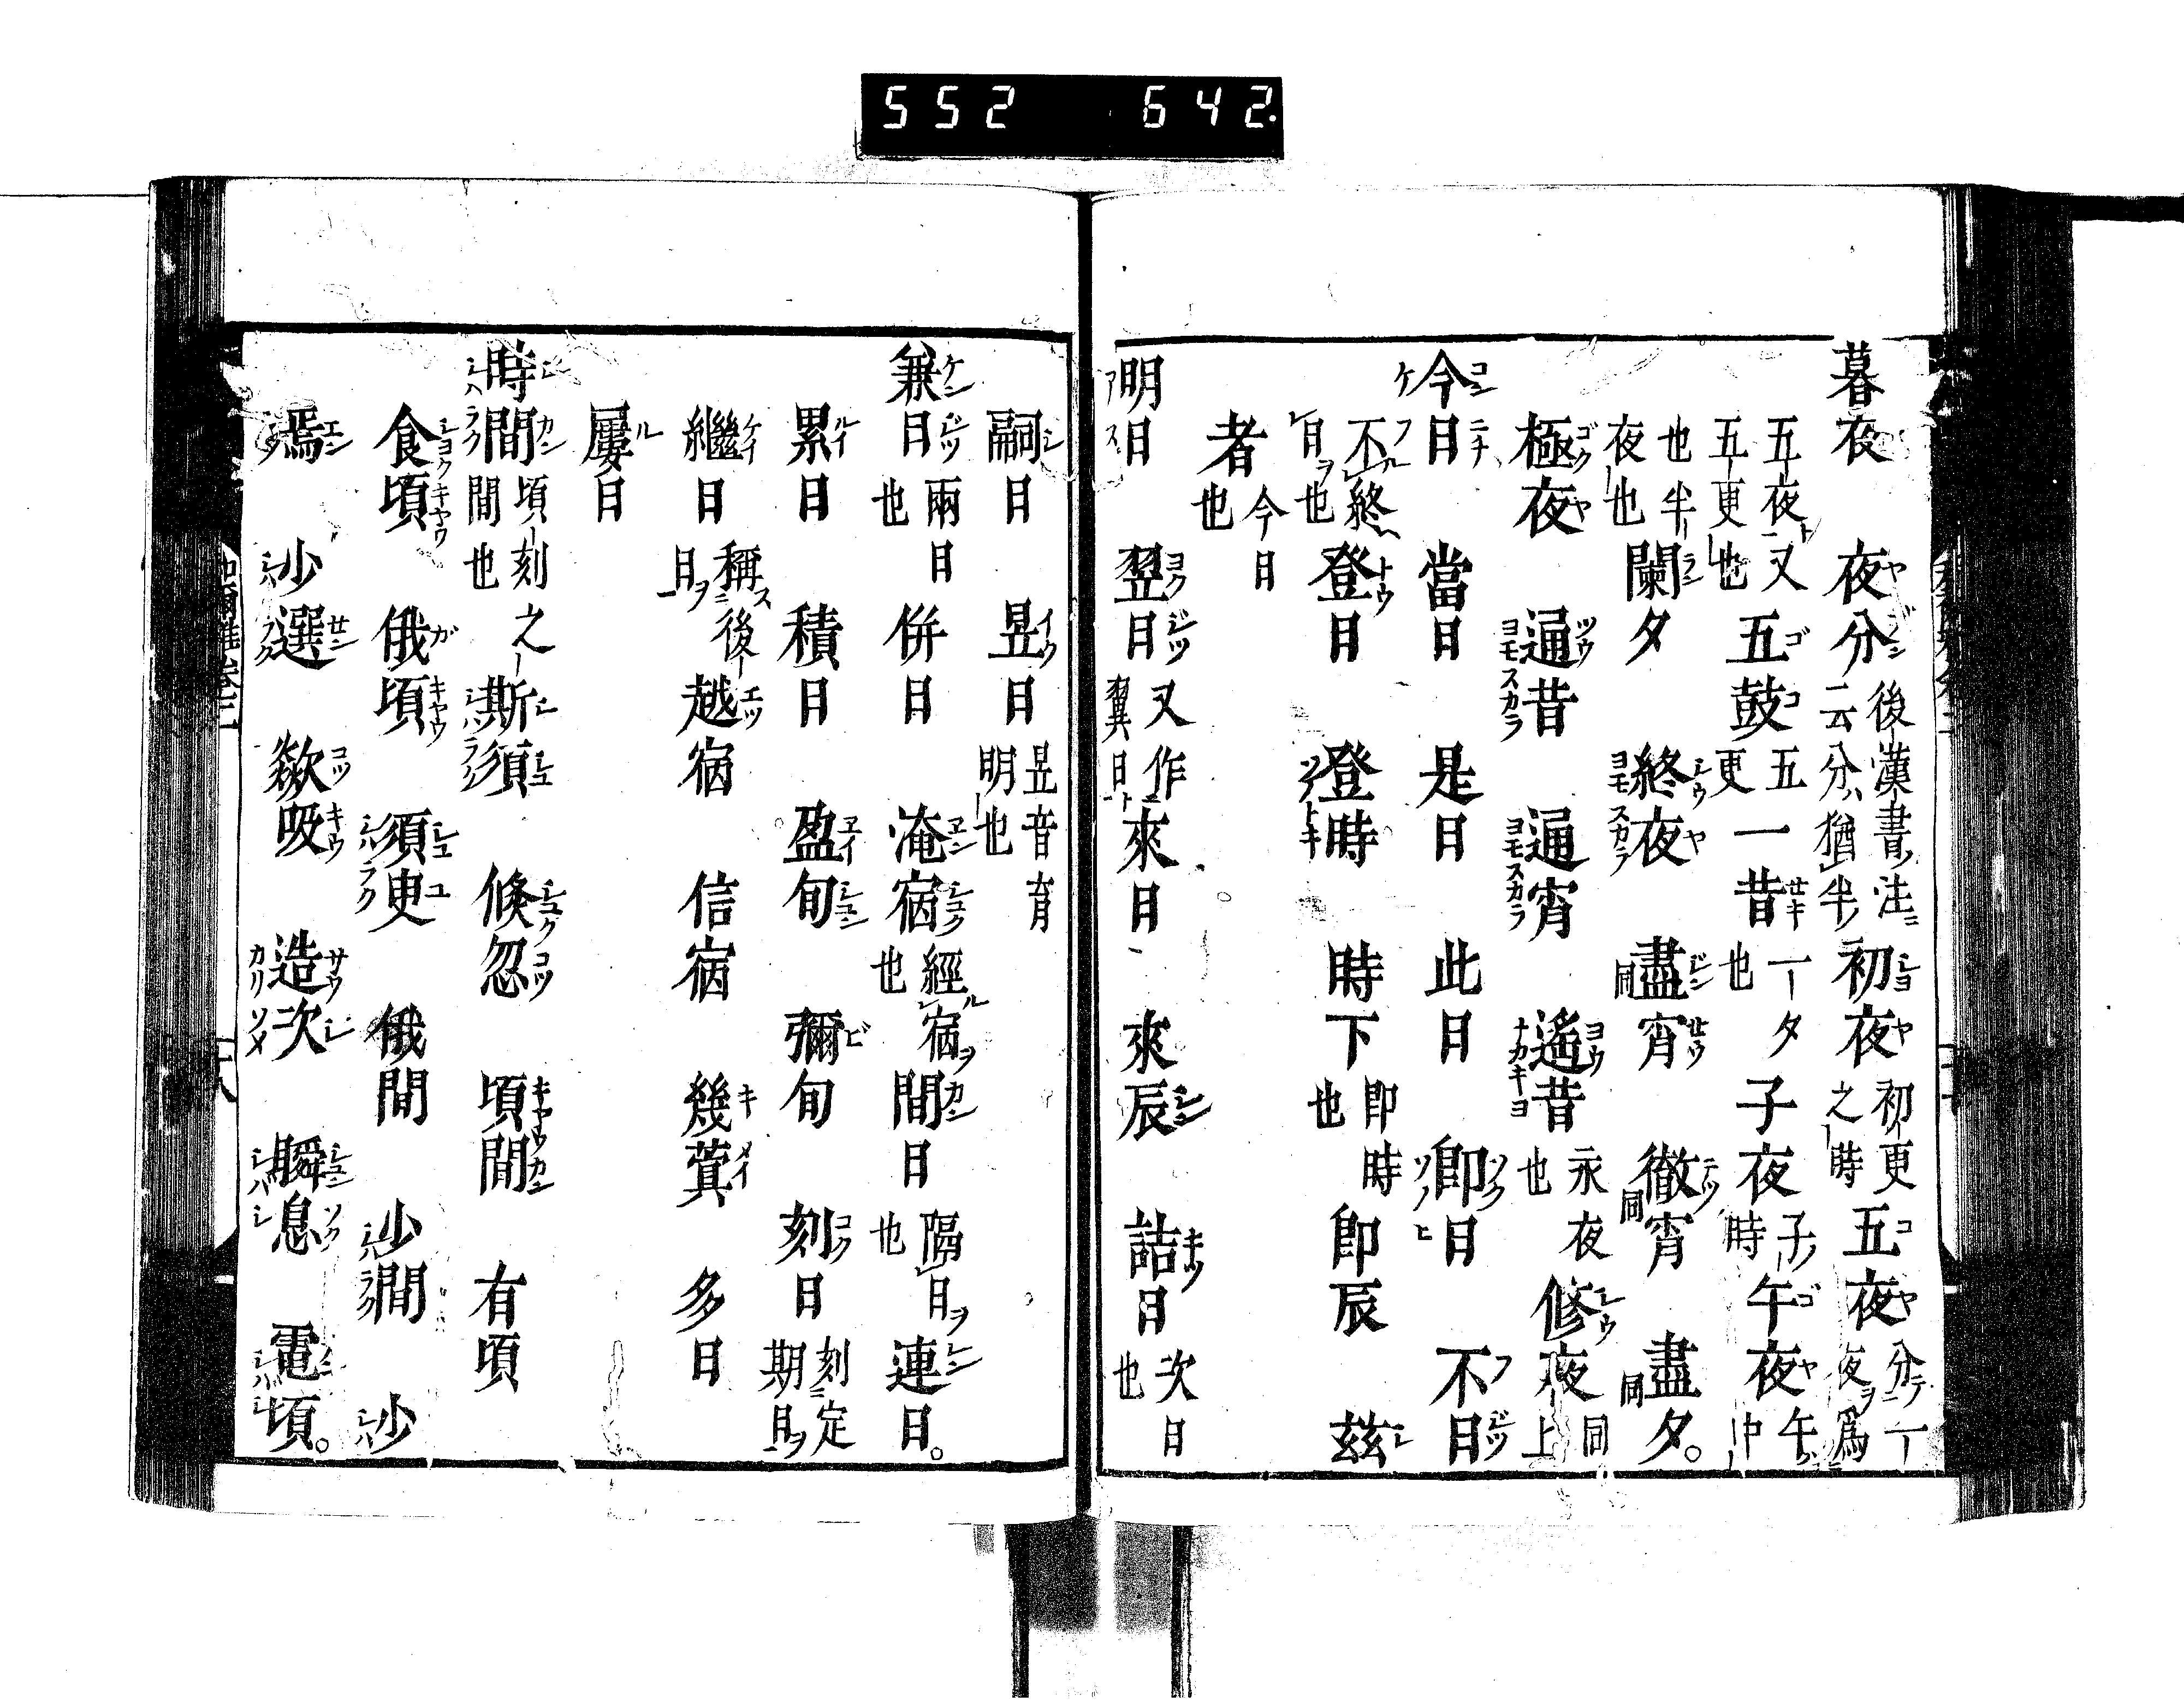 552 642.
暮夜 夜分 後漢書注ニ云分ハ猶半ノ 初夜 初更之時 五夜 分テ一夜ヲ為
五夜ト又五更也 五鼓 五更 一昔 一夕也 子夜 子ノ時 午夜 午中
也半夜也 闌夕 終夜 盡宵 同 徹宵 同 盡夕。 同
極夜 通昔 通宵 遙昔 永夜也 修夜 同上
今日 當日 是日 此日 即日 不日
不終日ヲ也 登日 登時 時下 即時也 即辰 茲
者 今日也
明日 翌日 又作翼日 來日 來辰 詰日 次日也
嗣日 昱日 昱音育明也
兼日 兩日也 併日 淹宿 經宿ヲ也 間日 隔日ヲ也 連日。
累日 積日 盈旬 彌旬 刻日 刻ニ定期日ヲ
繼日 稱ス後日ヲ 越宿 信宿 幾蓂 多日
屢日
時間 頃刻之間也 斯須 倏忽 頃間 有頃
食頃 俄頃 須臾 俄間 少間 少
焉 少選 欻吸 造次 瞬息 電頃。